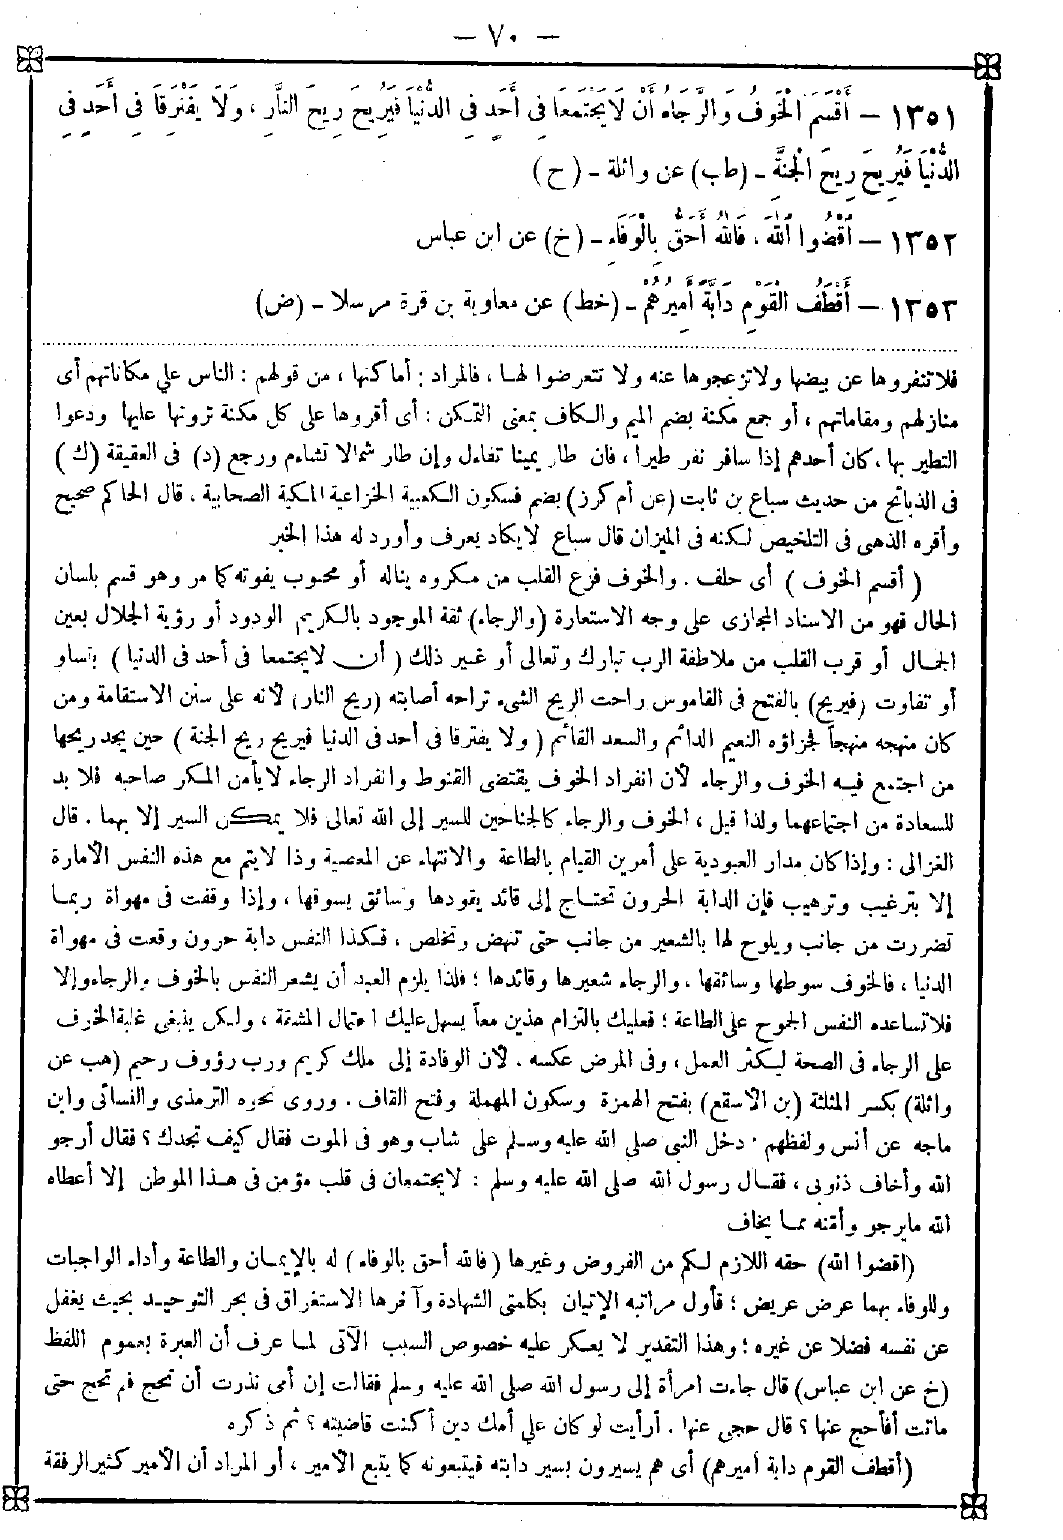 — ٧٠ —
١٣٥١ — أَقْسَمَ الْخَوْفُ وَالرَّجَاءُ أَنْ لَا يَجْتَمِعَا فِى أَحَدٍ فِى الدُّنْيَا فَيَرِيحَ رِيحَ النَّارِ ، وَلَا يَفْتَرِقَا فِى أَحَدٍ فِى
الدُّنْيَا فَيَرِيحَ رِيحَ الْجَنَّةِ - (طب) عن واثلة - (ح)
١٣٥٢ — اقْضُوا اللّٰهَ ، فَاللّٰهُ أَحَقُّ بِالْوَفَاءِ - (خ) عن ابن عباس
١٣٥٣ — أَقْطَفُ الْقَوْمِ دَابَّةً أَمِيرُهُمْ - (خط) عن معاوية بن قرة مرسلا - (ض)
فلا تنفروها عن بيضها ولا تزعجوها عنه ولا تتعرضوا لها ، فالمراد : أماكنها ، من قولهم : الناس علي مكاناتهم أى
منازلهم ومقاماتهم ، أو جمع مكنة بضم الميم والكاف بمعنى التمكن : أى أقروها على كل مكنة ترونها عليها ودعوا
التطير بها ، كان أحدهم إذا سافر نفر طيرا ، فان طار يمينا تفاءل وإن طار شمالا تشاءم ورجع (د) فى العقيقة (ك)
فى الذبائح من حديث سباع بن ثابت (عن أم كرز) بضم فسكون الكعبية الخزاعية المكية الصحابية ، قال الحاكم صحيح
وأقره الذهبى فى التلخيص لكنه فى الميزان قال سباع لا يكاد يعرف وأورد له هذا الخبر
( أقسم الخوف ) أى حلف . والخوف فزع القلب من مكروه يناله أو محبوب يفوته كما مر وهو قسم بلسان
الحال فهو من الاسناد المجازى على وجه الاستعارة (والرجاء) ثقة الموجود بالكريم الودود أو رؤية الجلال بعين
الجمال أو قرب القلب من ملاطفة الرب تبارك وتعالى أو غير ذلك ( أن لا يجتمعا فى أحد فى الدنيا ) بتساو
أو تفاوت (فيريح) بالفتح فى القاموس راحت الريح الشىء تراحه أصابته (ريح النار) لأنه على سنن الاستقامة ومن
كان منهجه منهجاً فجزاؤه النعيم الدائم والسعد القائم ( ولا يفترقا فى أحد فى الدنيا فيريح ريح الجنة ) حين يجد ريحها
من اجتمع فيه الخوف والرجاء لأن انفراد الخوف يقتضى القنوط وانفراد الرجاء لا يأمن المكر صاحبه فلا بد
للسعادة من اجتماعهما ولذا قيل ، الخوف والرجاء كالجناحين للسير إلى الله تعالى فلا يمكن السير إلا بهما . قال
الغزالى : وإذا كان مدار العبودية على أمرين القيام بالطاعة والانتهاء عن المعصية وذا لا يتم مع هذه النفس الأمارة
إلا بترغيب وترهيب فإن الدابة الحرون تحتاج إلى قائد يقودها وسائق يسوقها ، وإذا وقفت فى مهواة ربما
تضررت من جانب ويلوح لها بالشعير من جانب حتى تنهض وتخلص ، فكذا النفس دابة حرون وقعت فى مهواة
الدنيا ، فالخوف سوطها وسائقها ، والرجاء شعيرها وقائدها ؛ فلذا يلزم العبد أن يشعر النفس بالخوف والرجاء وإلا
فلا تساعده النفس الجموح على الطاعة ؛ فعليك بالتزام هذين معاً يسهل عليك احتمال المشقة ، ولكن ينبغى غلبة الخوف
على الرجاء فى الصحة ليكثر العمل ، وفى المرض عكسه . لأن الوفادة إلى ملك كريم ورب رؤوف رحيم (هب عن
واثلة) بكسر المثلثة (بن الأسقع) بفتح الهمزة وسكون المهملة وفتح القاف . وروى نحوه الترمذى والنسائى وابن
ماجه عن أنس ولفظهم . دخل النبى صلى الله عليه وسلم على شاب وهو فى الموت فقال كيف تجدك ؟ فقال أرجو
الله وأخاف ذنوبى ، فقال رسول الله صلى الله عليه وسلم : لا يجتمعان فى قلب مؤمن فى هذا الموطن إلا أعطاه
الله ما يرجو وأمنه مما يخاف
(اقضوا الله) حقه اللازم لكم من الفروض وغيرها (فالله أحق بالوفاء) له بالإيمان والطاعة وأداء الواجبات
وللوفاء بهما عرض عريض ؛ فأول مراتبه الإتيان بكلمتى الشهادة وآخرها الاستغراق فى بحر التوحيد بحيث يغفل
عن نفسه فضلا عن غيره ؛ وهذا التقدير لا يعكر عليه خصوص السبب الآتى لما عرف أن العبرة بعموم اللفظ
(خ عن ابن عباس) قال جاءت امرأة إلى رسول الله صلى الله عليه وسلم فقالت إن أمى نذرت أن تحج فلم تحج حتى
ماتت أفأحج عنها ؟ قال حجى عنها . أرأيت لو كان علي أمك دين أكنت قاضيته ؟ ثم ذكره
(أقطف القوم دابة أميرهم) أى هم يسيرون بسير دابته فيتبعونه كما يتبع الأمير ، أو المراد أن الأمير كثير الرفقة